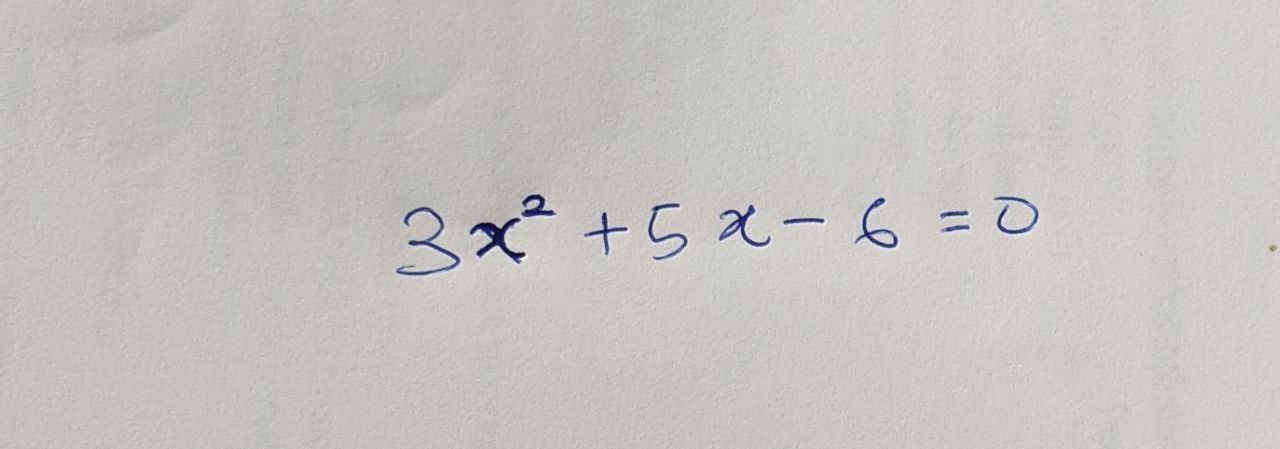 3x² + 5x - 6 = 0